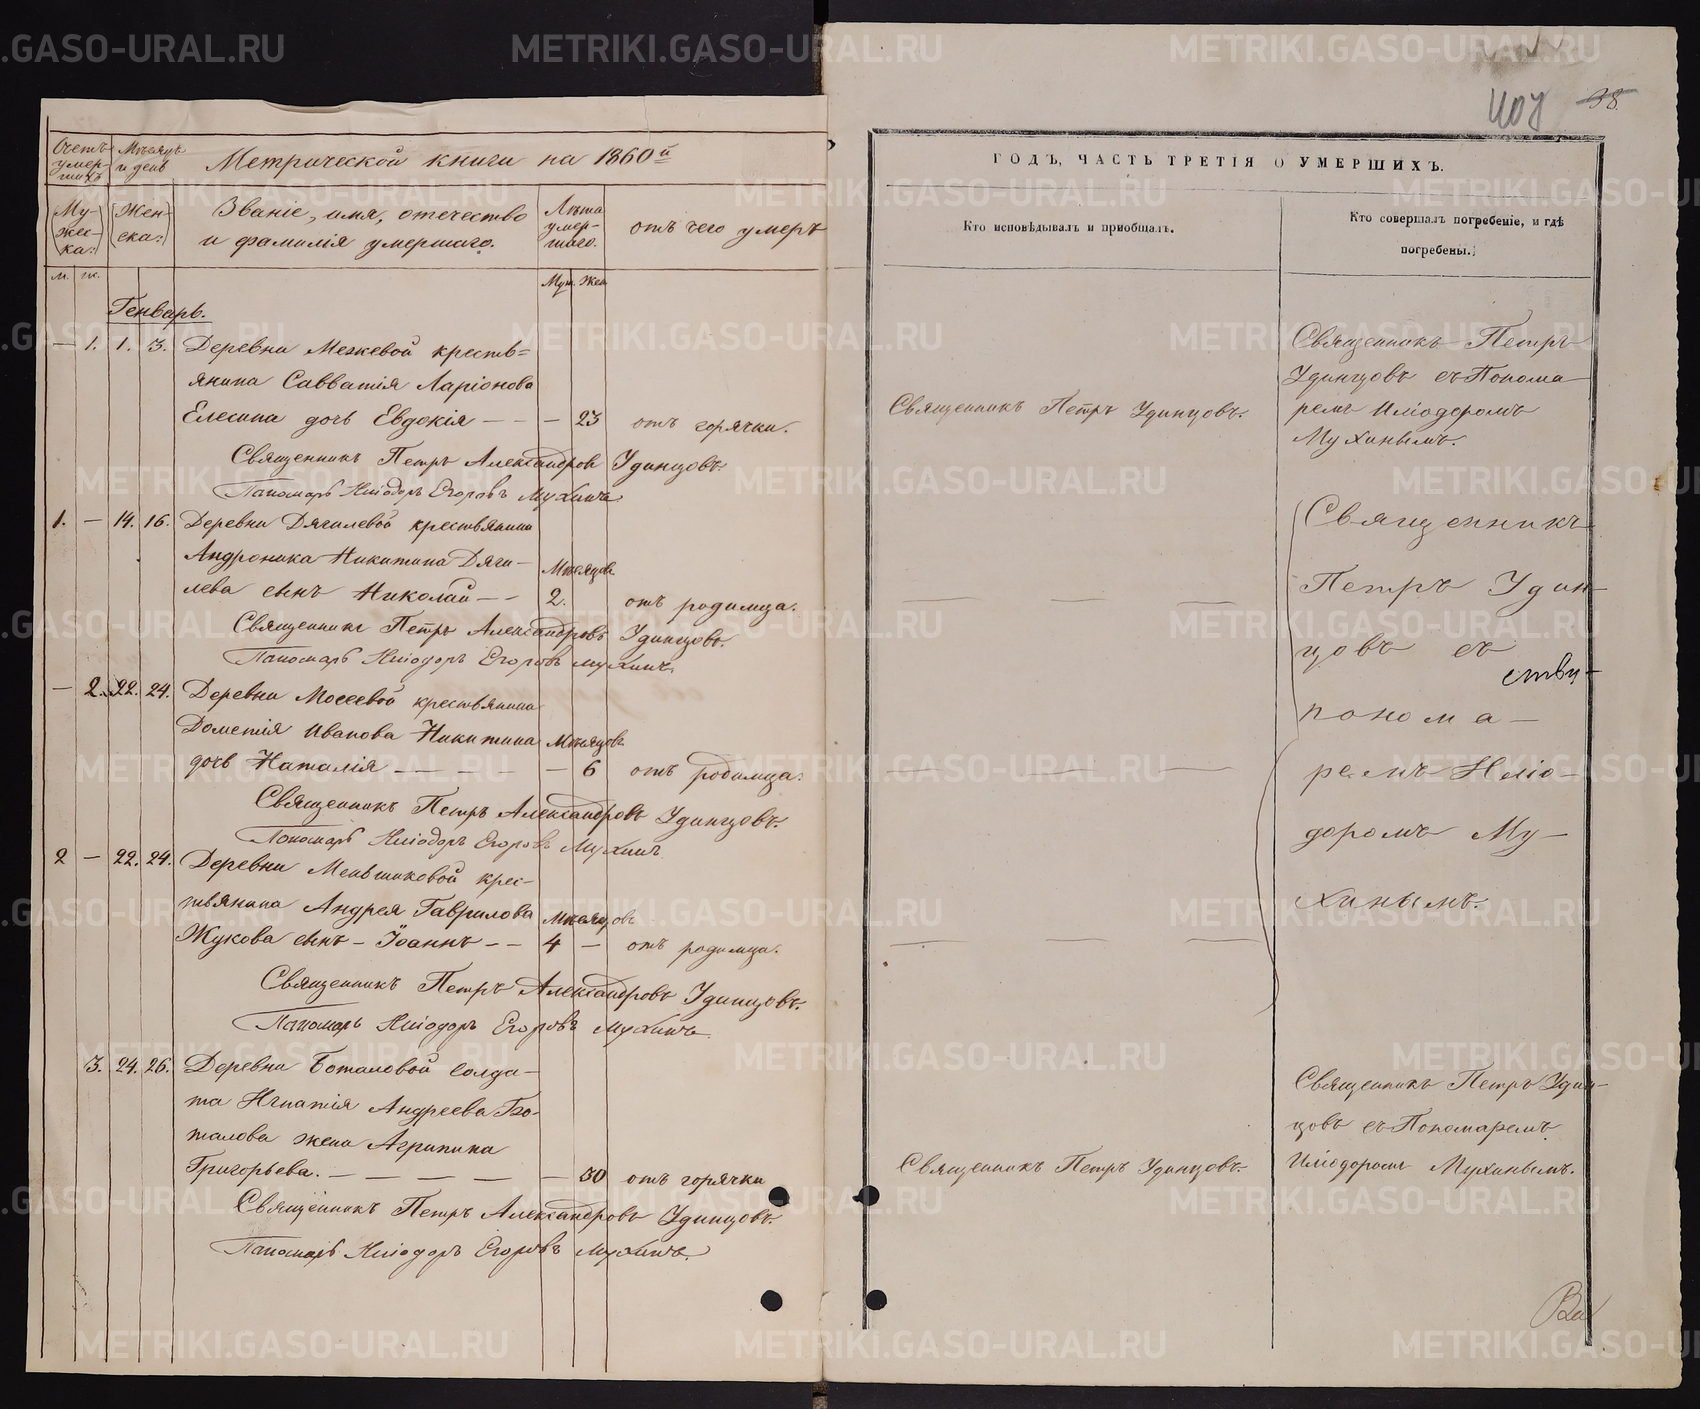 Счетъ умер- шихъ
Мѣсяцъ и день
Метрической книги на 1860й
(Му- жес- ка:)
(Жен- ска:)
Званіе, имя, отечество
и фамилія умершаго.
Лѣта умер- шаго.
отъ чего умеръ
м. ж.
Муж. Жен.
Генварь.
— 1. 1. 3. Деревни Межевой кресть=
янина Савватія Ларіонова
Елесина дочь Евдокія — — — 23 отъ горячки.
Священникъ Петръ Александровъ Удинцовъ.
Пономарь Иліодоръ Егоровъ Мухинъ
1. — 14. 16. Деревни Дягилевой крестьянина
Андроника Никитина Дяги-
лева сынъ Николай — — Мѣсяцов 2. отъ родимца.
Священникъ Петръ Александровъ Удинцовъ.
Пономарь Иліодоръ Егоровъ Мухинъ.
— 2. 22. 24. Деревни Мосеевой крестьянина
Дометія Иванова Никитина Мѣсяцовъ
дочь Наталія — — — — — 6 отъ родимца.
Священникъ Петръ Александровъ Удинцовъ.
Пономарь Иліодоръ Егоровъ Мухинъ
2 — 22. 24. Деревни Меньшиковой крес-
тьянина Андрея Гаврилова Мѣсяцовъ
Жукова сынъ — Іоаннъ — — 4 — отъ родимца.
Священникъ Петръ Александровъ Удинцовъ.
Пономарь Иліодоръ Егоровъ Мухинъ
3. 24. 26. Деревни Боталовой солда-
та Игнатія Андреева Бо-
талова жена Агрипина
Григорьева. — — — — — 50 отъ горячки
Священникъ Петръ Александровъ Удинцовъ.
Пономарь Иліодоръ Егоровъ Мухинъ.
38.
ГОДЪ, ЧАСТЬ ТРЕТІЯ О УМЕРШИХЪ.
Кто исповѣдывалъ и приобщалъ.
Кто совершалъ погребеніе, и гдѣ
погребены.
Священникъ Петръ Удинцовъ.
Священникъ Петръ
Удинцовъ съ Понома
ремъ Иліодоромъ
Мухинымъ.
— — —
Священникъ
Петръ Удин-
цовъ съ
понома-
ремъ Иліо-
доромъ Му-
хинымъ.
— — —
— — —
Священникъ Петръ Удинцовъ.
Священникъ Петръ Удин-
цовъ съ Пономаремъ
Иліодоромъ Мухинымъ.
METRIKI.GASO-URAL.RU